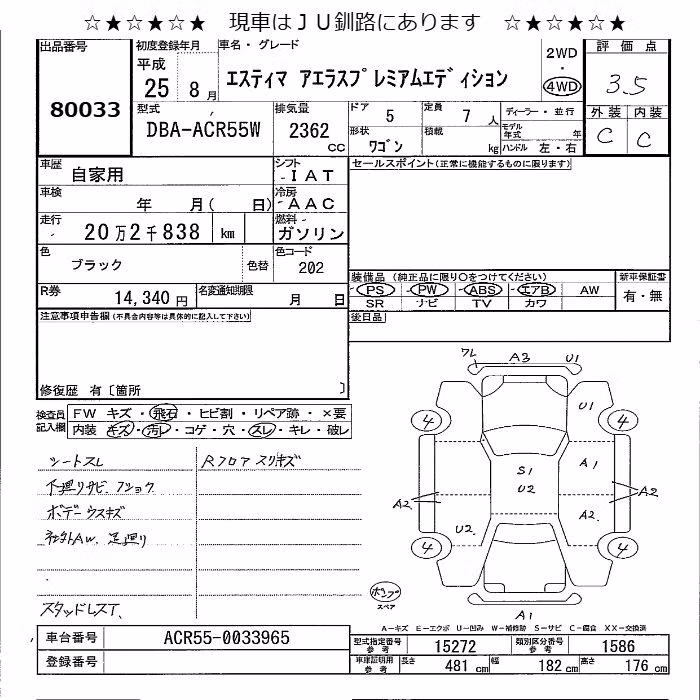 ☆★☆★☆★ 現車はJU釧路にあります ☆★☆★☆★
出品番号
80033
初度登録年月
平成
25 8 月
車名・グレード
エスティマ アエラスプレミアムエディション
2WD
・
4WD
評価点
3.5
外装 内装
C C
型式
DBA-ACR55W
排気量
2362
CC
ドア
5
定員
7 人
ディーラー・並行
形状
ワゴン
積載
kg
モデル年式 年
ハンドル 左・右
車歴
自家用
シフト
IAT
セールスポイント(正常に機能するものに限ります)
車検
年 月( 日)
冷房
AAC
走行
20万2千838 km
燃料
ガソリン
色
ブラック
色替
色コード
202
装備品 (純正品に限り○をつけてください)
新車保証書
PS PW ABS エアB AW
有・無
SR ナビ TV カワ
R券
14,340 円
名変通知期限
月 日
後日品
注意事項申告欄(不具合内容等は具体的に記入して下さい)
修復歴 有〔箇所 〕
検査員
記入欄
FW キズ・飛石・ヒビ割・リペア跡・×要
内装 キズ・汚レ・コゲ・穴・スレ・キレ・破レ
シートスレ
Rフロア スリキズ
下廻りサビ. フショク
ボデーウスキズ
社外AW. 足廻り
スタッドレスT.
ワレ A3 U1
4 U1 4
A1
S1
U2
A2 A2 A2
4 U2 4
A1
スペア
A-キズ E-エクボ U-凹み W-補修跡 S-サビ C-腐食 XX-交換済
車台番号
ACR55-0033965
登録番号
型式指定番号
参考
15272
類別区分番号
参考
1586
車庫証明用
参考
長さ
481 cm
幅
182 cm
高さ
176 cm